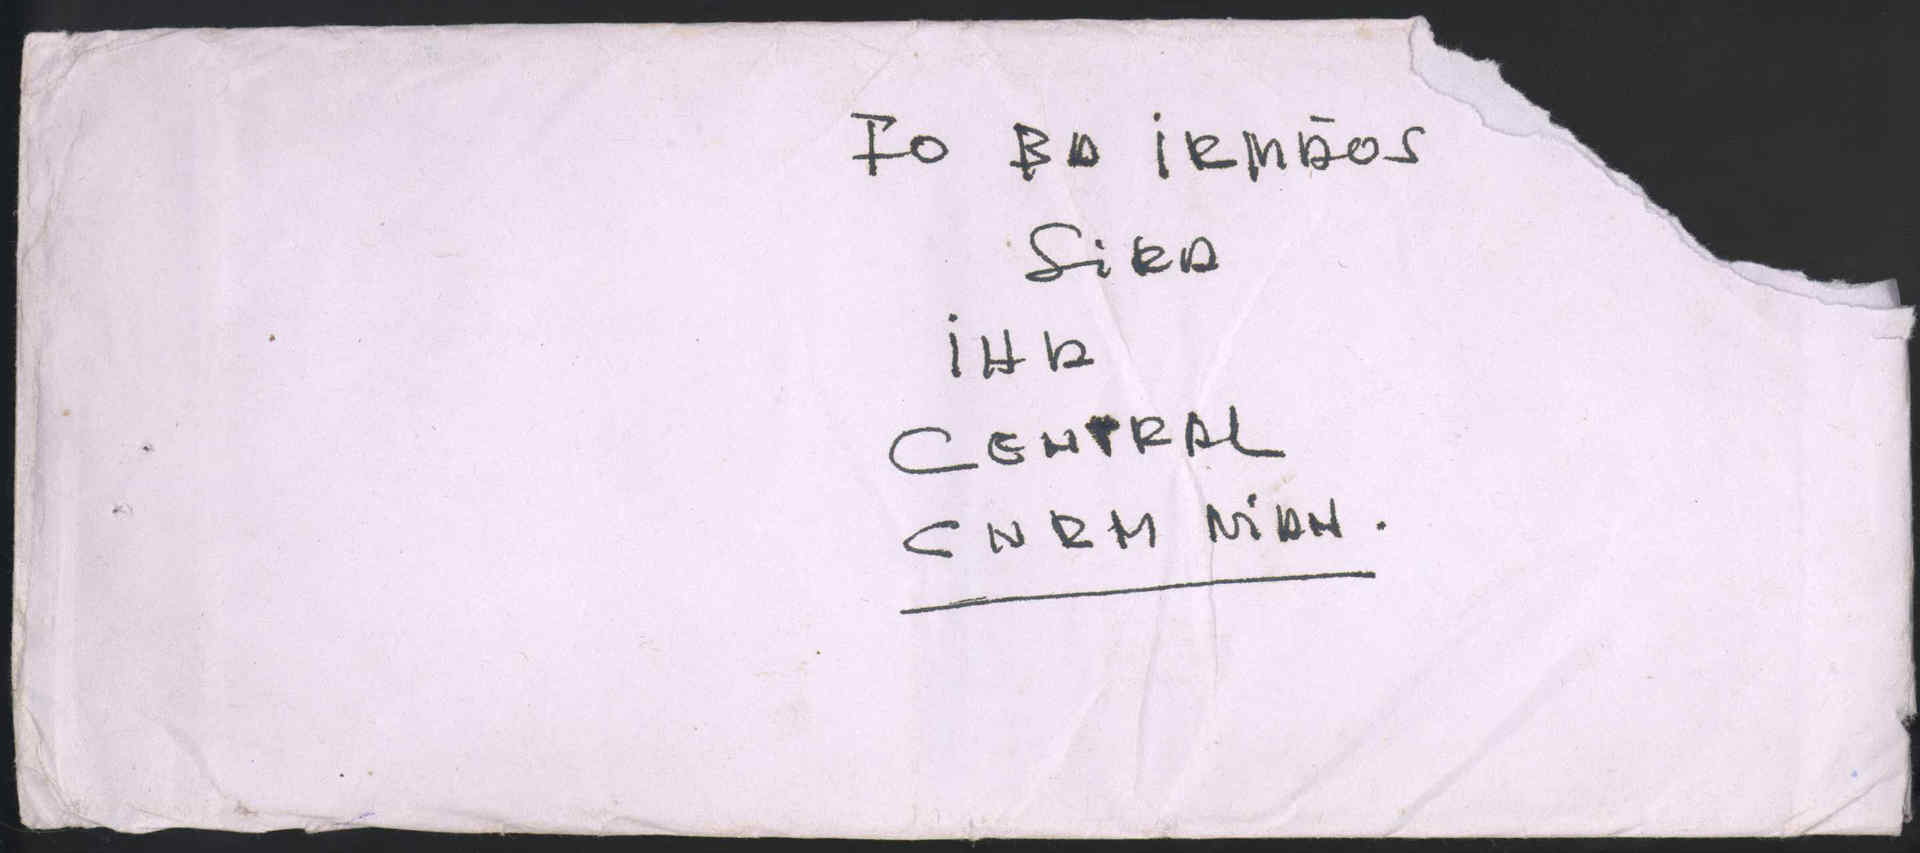 FO BA iRMÃOS
SiRA
iHA
CENTRAL
CNRM NiAN.